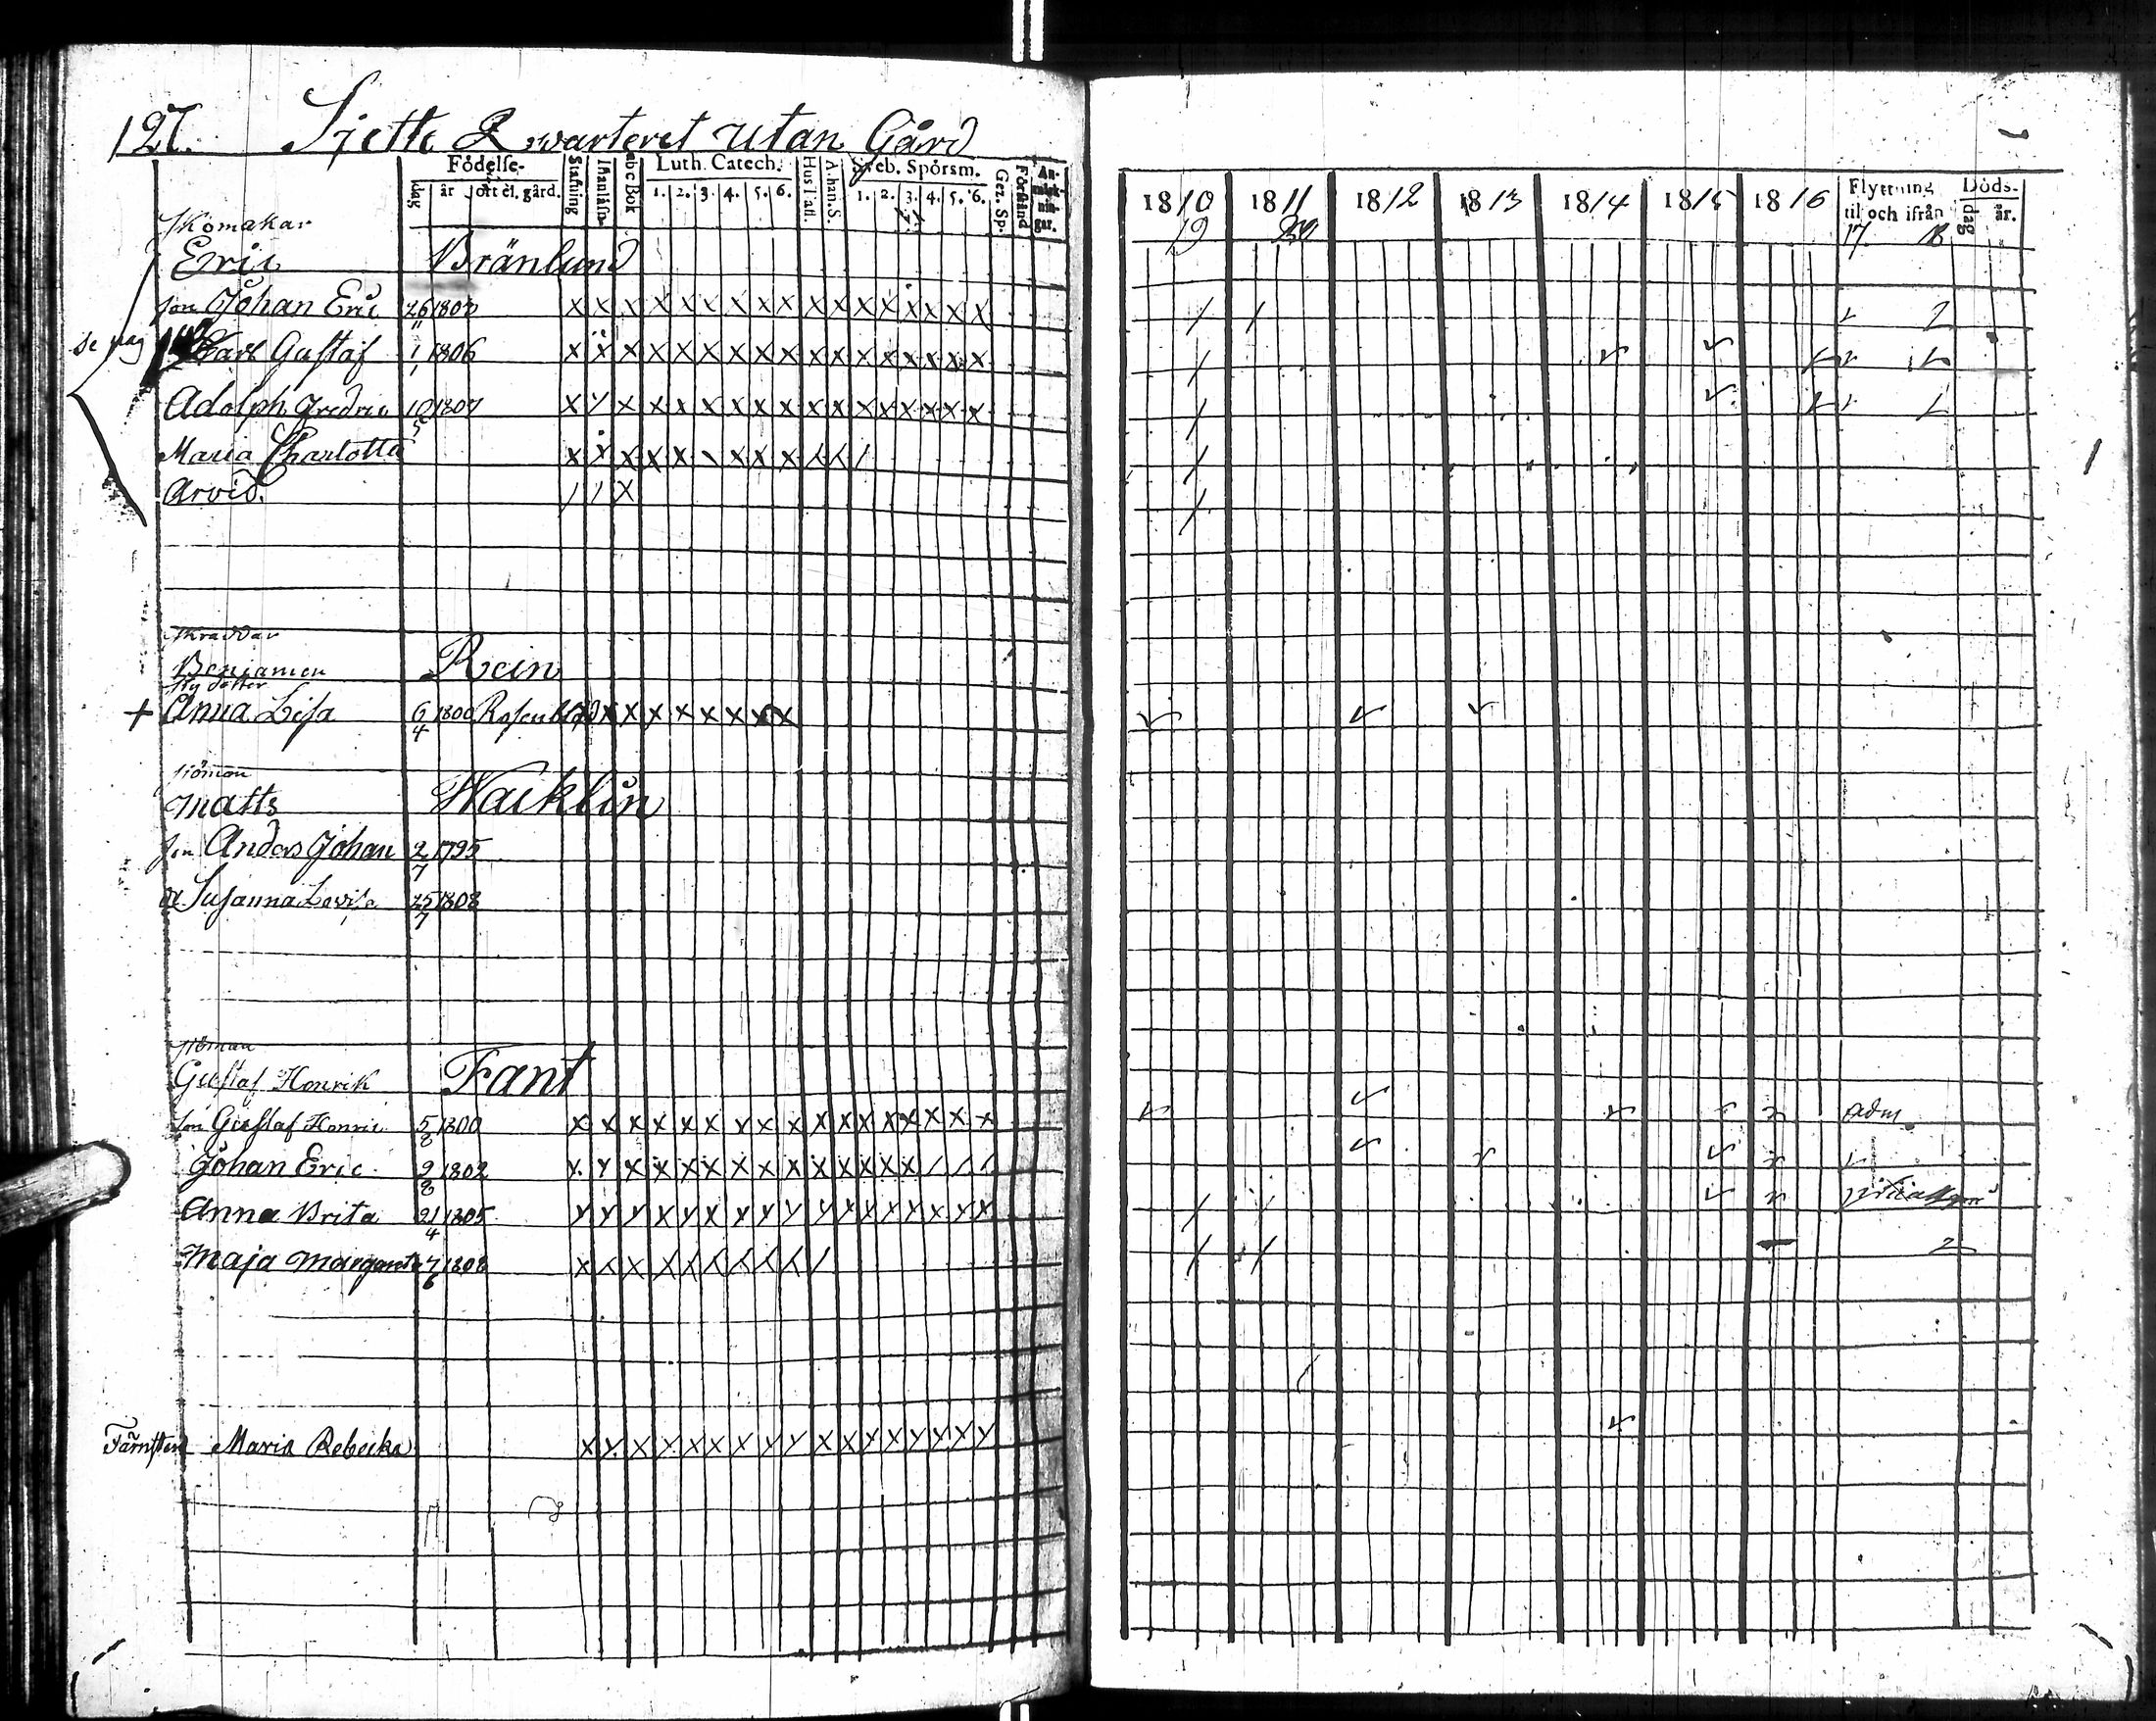 127. Sjette Qwarteret utan Gård
Födelse- Stafning Luth. Catech. Hus Tafl. A. han. S. Sveb. Spörsm. Gez. Sp. Förstånd An-märk-nin-gar.
dag år ort el. gård. abc Bok 1. 2. 3. 4. 5. 6. 1. 2. 3. 4. 5. 6.
1810 1811 1812 1813 1814 1815 1816 Flyttning til och ifrån Döds- dag år.
19 17 18
Skomakar
Eric Bränlund
son Johan Eric 26/11 1803 x x x x x x x x x x x x x x x x x
se pag
Carl Gustaf 1/1 1806 x x x x x x x x x x x x x x x x x
Adolph Fredric 10/5 1807 x y x x x x x x x x x x x x x x x
Maria Charlotta
Arvid.
Skraddar
Benjamen Rein
sty dotter
+ Anna Lisa 6/4 1800 Rosenblad x x x x x x x x
Sjöman
Matts Wacklin
son Anders Johan 2/7 1795
d Susanna Lovisa 25/7 1808
Sjöman
Gustaf Henrik Fant
son Gustaf Henric 5/8 1800 x x x x x x x x x x x x x x x x x adm
Johan Eric 9/8 1802
Anna Brita 21/4 1805
Maja Margareta 7/6 1808
Maria Rebecka